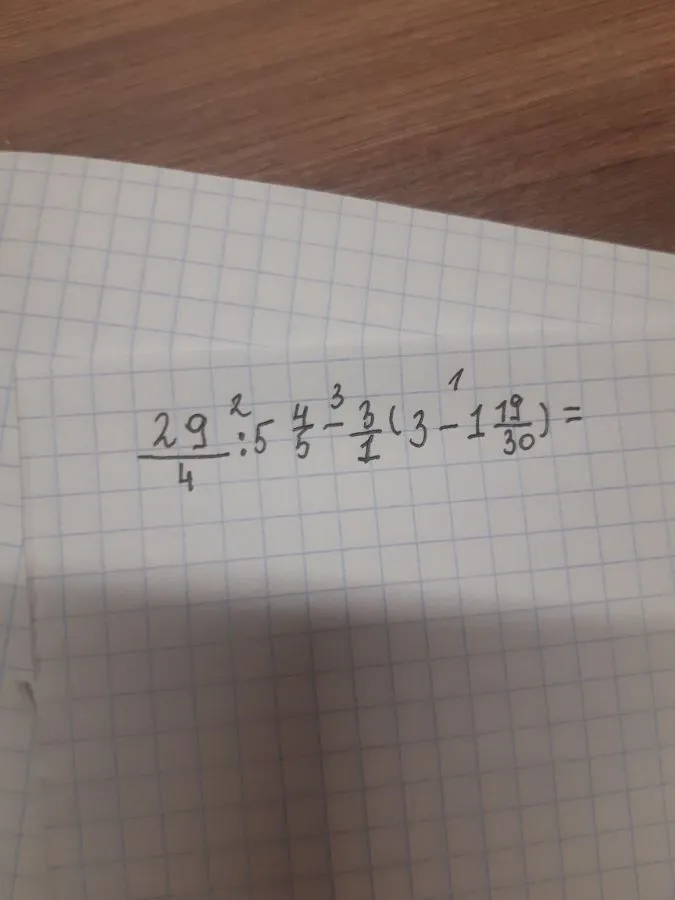 29/4 :² 5 4/5 -³ 3/1 (3 -¹ 1 19/30) =